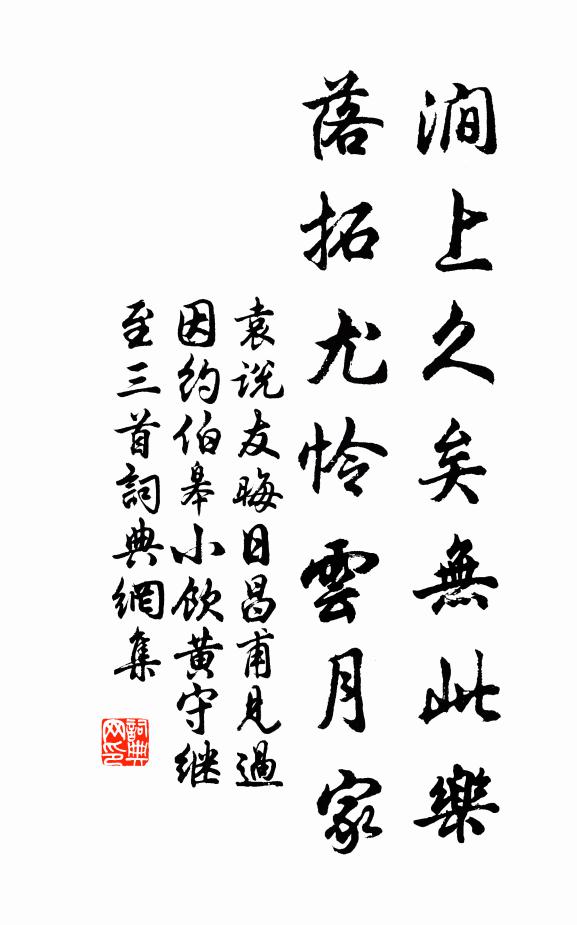 澗上久矣無此樂
落拓尤怜雲月家
袁説友晦日昌甫見過
因約伯皋小飲黄守继
至三首詞典網集
詞典
网印